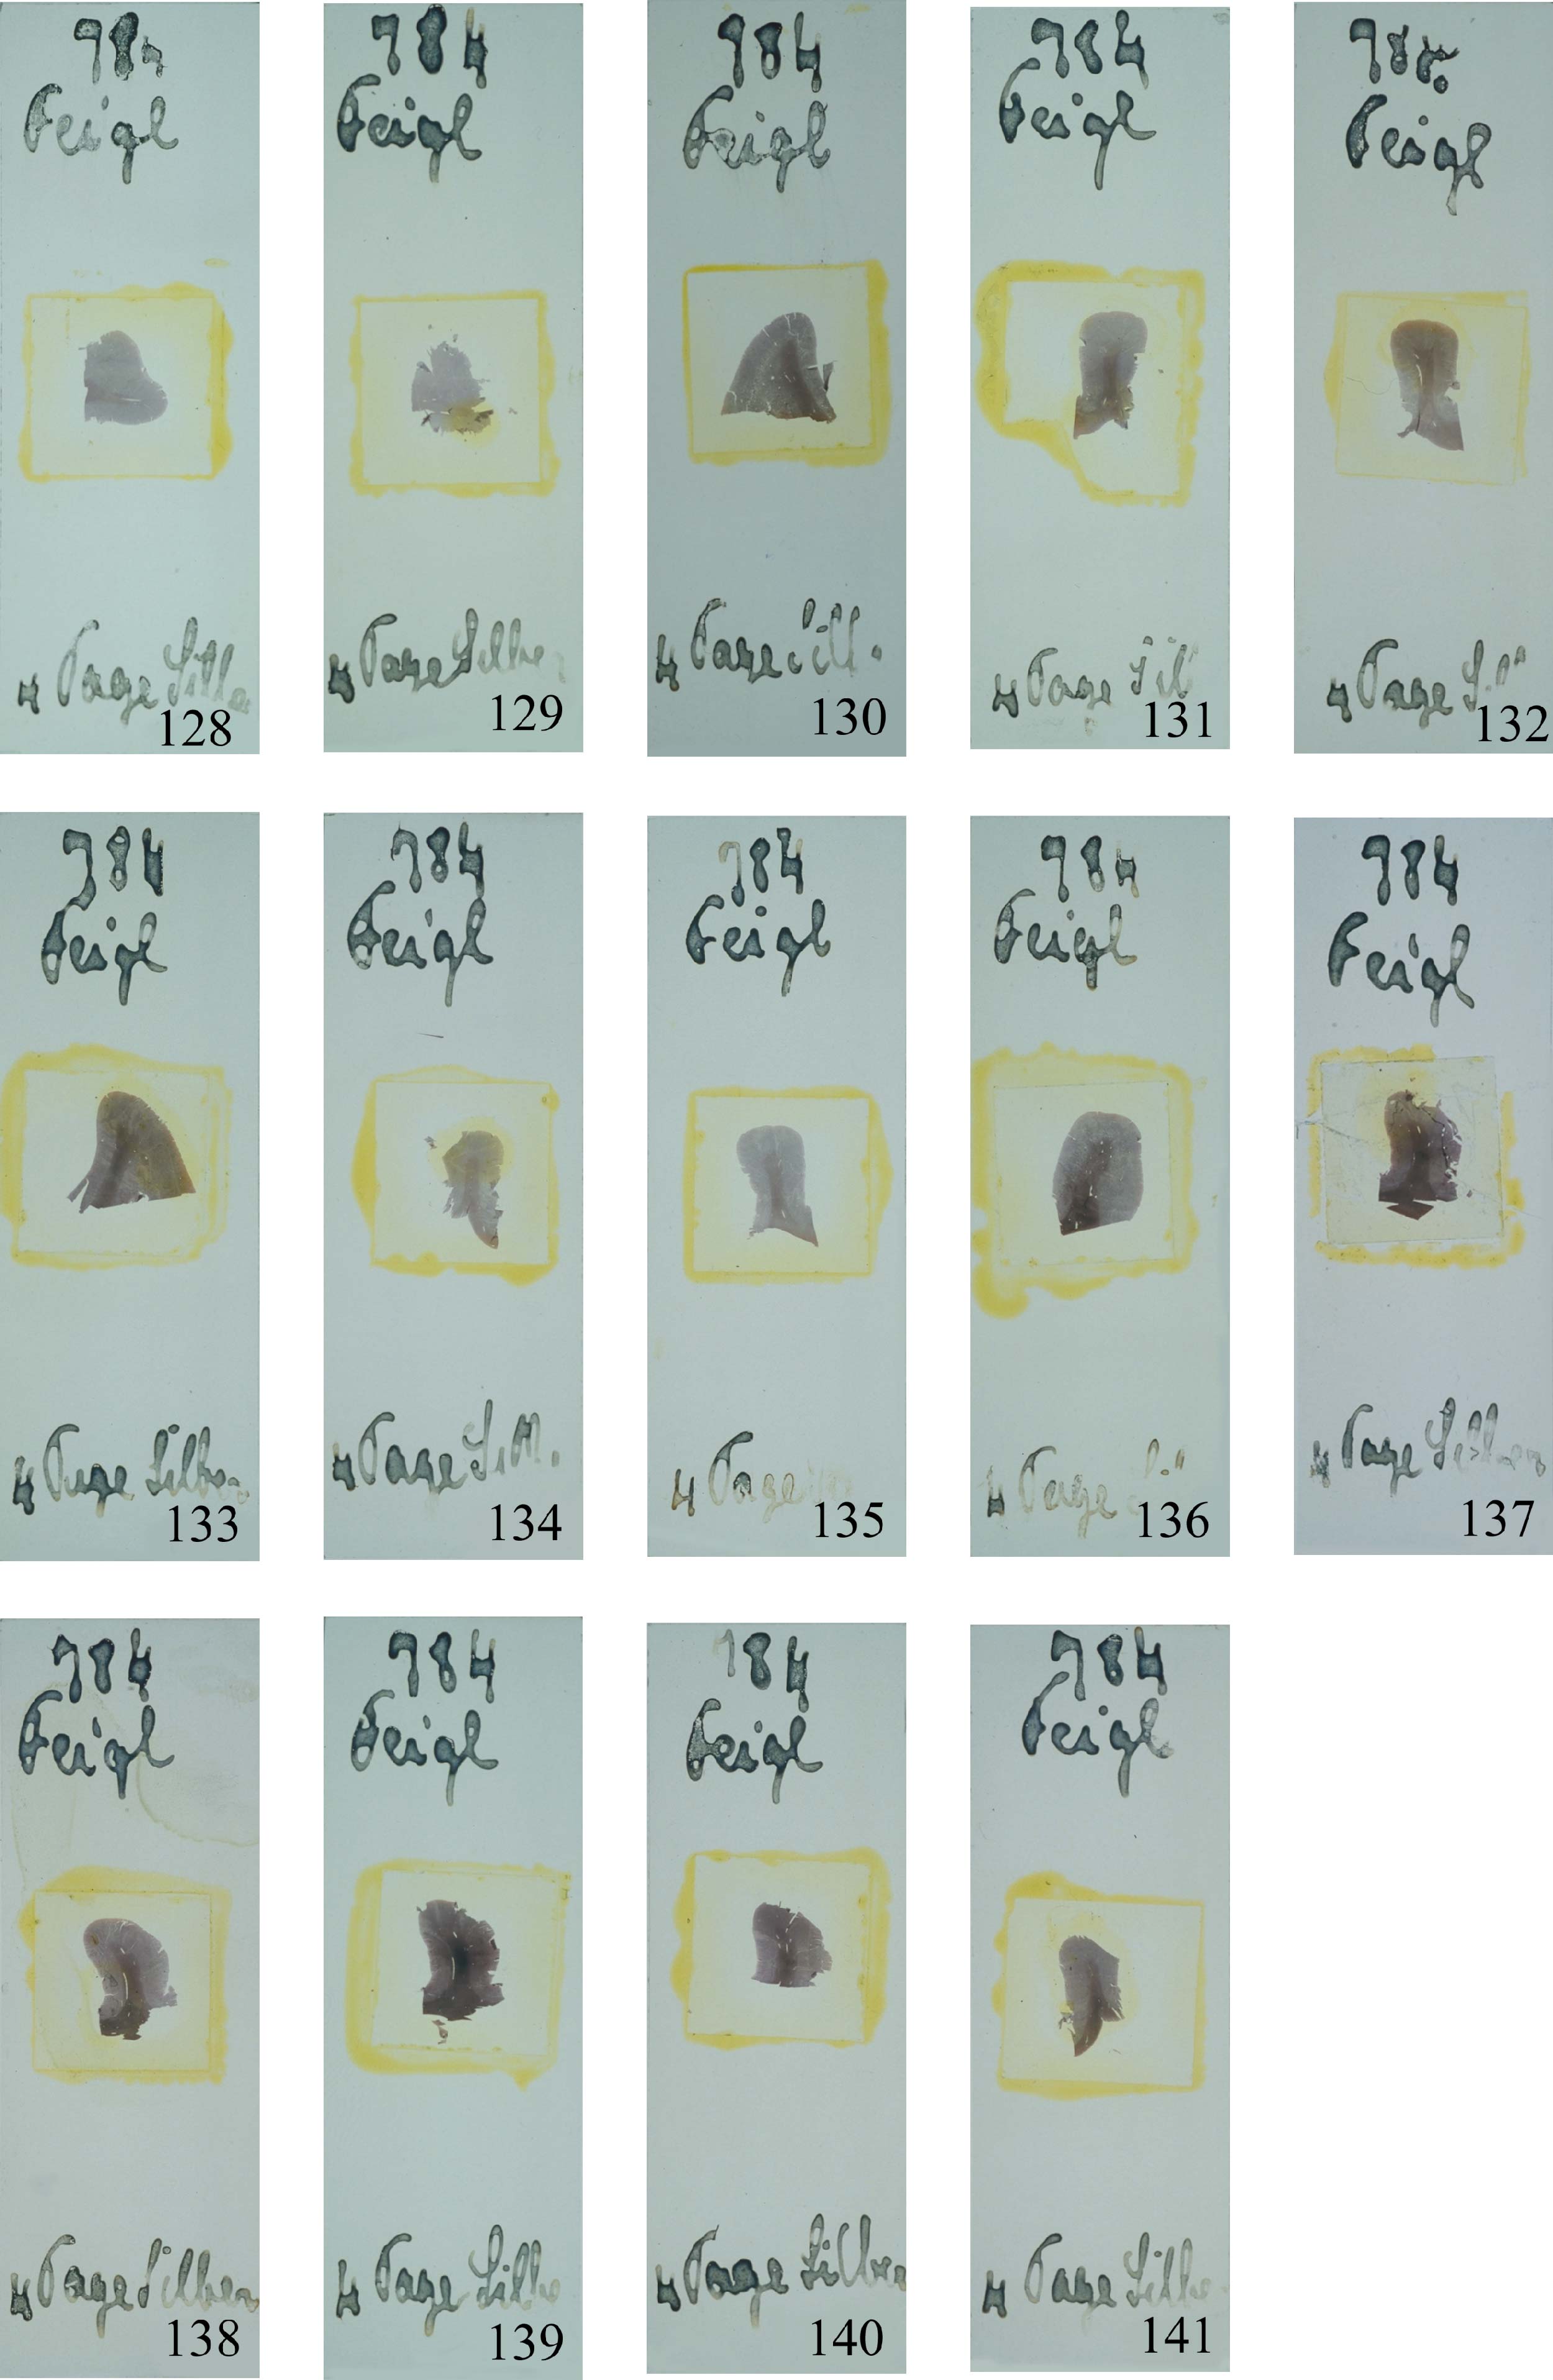 784
Feigl
4 Tage Silbe
128
784
Feigl
4 Tage Silbe
129
784
Feigl
4 Tage Silb.
130
784
Feigl
4 Tage Sil
131
784
Feigl
4 Tage
132
784
Feigl
4 Tage Silber
133
784
Feigl
4 Tage Silb.
134
784
Feigl
4 Tage
135
784
Feigl
4 Tage
136
784
Feigl
4 Tage Silber
137
784
Feigl
4 Tage Silber
138
784
Feigl
4 Tage Silbe
139
784
Feigl
4 Tage Silber
140
784
Feigl
4 Tage Silbe
141